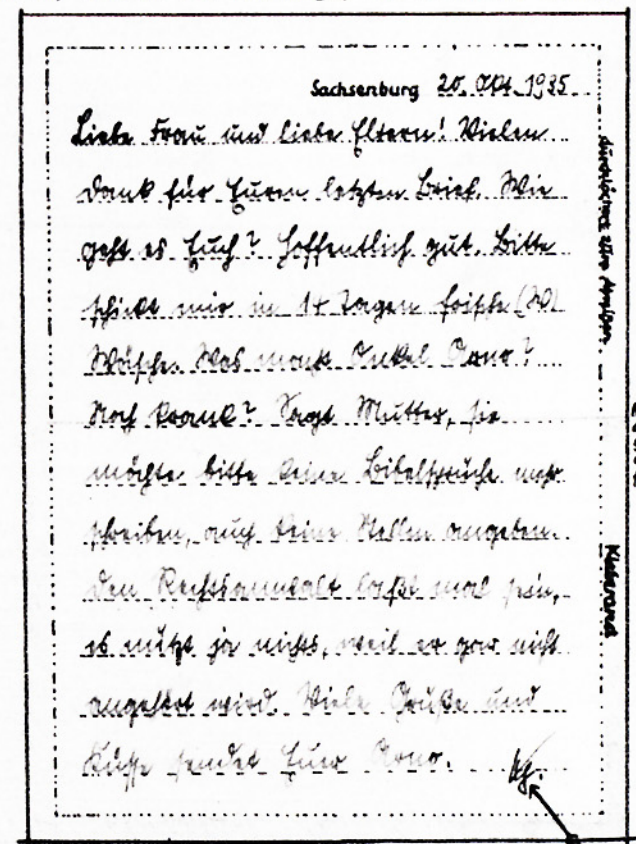 Sachsenburg 20. Okt. 1935
Liebe Frau und liebe Eltern! Vielen
Dank für Euren letzten Brief. Wie
geht es Euch? Hoffentlich gut. Bitte
schickt mir in 14 Tagen frische (W)
Wäsche. Was macht Onkel Arno?
Noch krank? Sagt Mutter, sie
möchte bitte keine Bibelsprüche mehr
schreiben, auch keine Stellen angeben.
Den Rechtsanwalt laßt mal sein,
es nützt ja nichts, weil er gar nicht
angehört wird. Viele Grüße und
Küsse sendet Euer Arno.
Kleberand